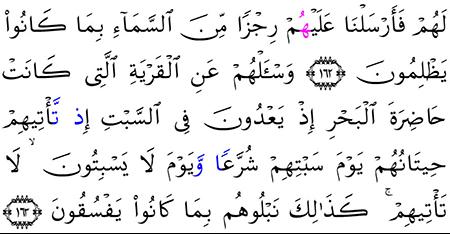 لَهُمْ فَأَرْسَلْنَا عَلَيْهُمْ رِجْزًا مِّنَ السَّمَآءِ بِمَا كَانُواْ
يَظْلِمُونَ ١٦٢ وَسْـَٔلْهُمْ عَنِ الْقَرْيَةِ الَّتِى كَانَتْ
حَاضِرَةَ الْبَحْرِ إِذْ يَعْدُونَ فِى السَّبْتِ إِذ تَّأْتِيهِمْ
حِيتَانُهُمْ يَوْمَ سَبْتِهِمْ شُرَّعًا وَّيَوْمَ لَا يَسْبِتُونَ ۙ لَا
تَأْتِيهِمْ ۚ كَذَٰلِكَ نَبْلُوهُم بِمَا كَانُواْ يَفْسُقُونَ ١٦٣